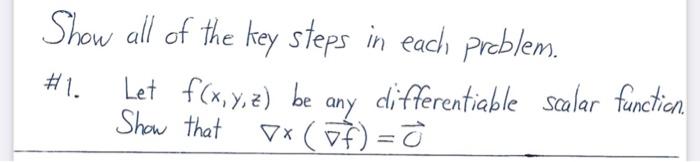 Show all of the key steps in each problem.
#1. Let f(x,y,z) be any differentiable scalar function.
Show that ∇× (∇⃗f) = 0⃗